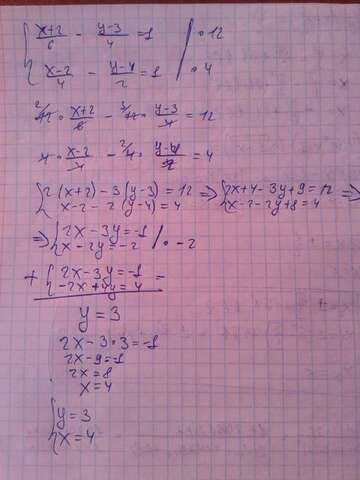 { (x+2)/6 - (y-3)/4 = 1 / · 12
{ (x-2)/4 - (y-4)/2 = 1 / · 4
12 · (x+2)/6 - 12 · (y-3)/4 = 12
4 · (x-2)/4 - 4 · (y-4)/2 = 4
{ 2(x+2) - 3(y-3) = 12 ⇒ { 2x+4-3y+9=12 ⇒
{ x-2-2(y-4) = 4 { x-2-2y+8=4
⇒ { 2x-3y=-1
{ x-2y=-2 / · -2
+ { 2x-3y=-1 =
{ -2x+4y=4
y=3
2x-3·3=-1
2x-9=-1
2x=8
x=4
{ y=3
{ x=4